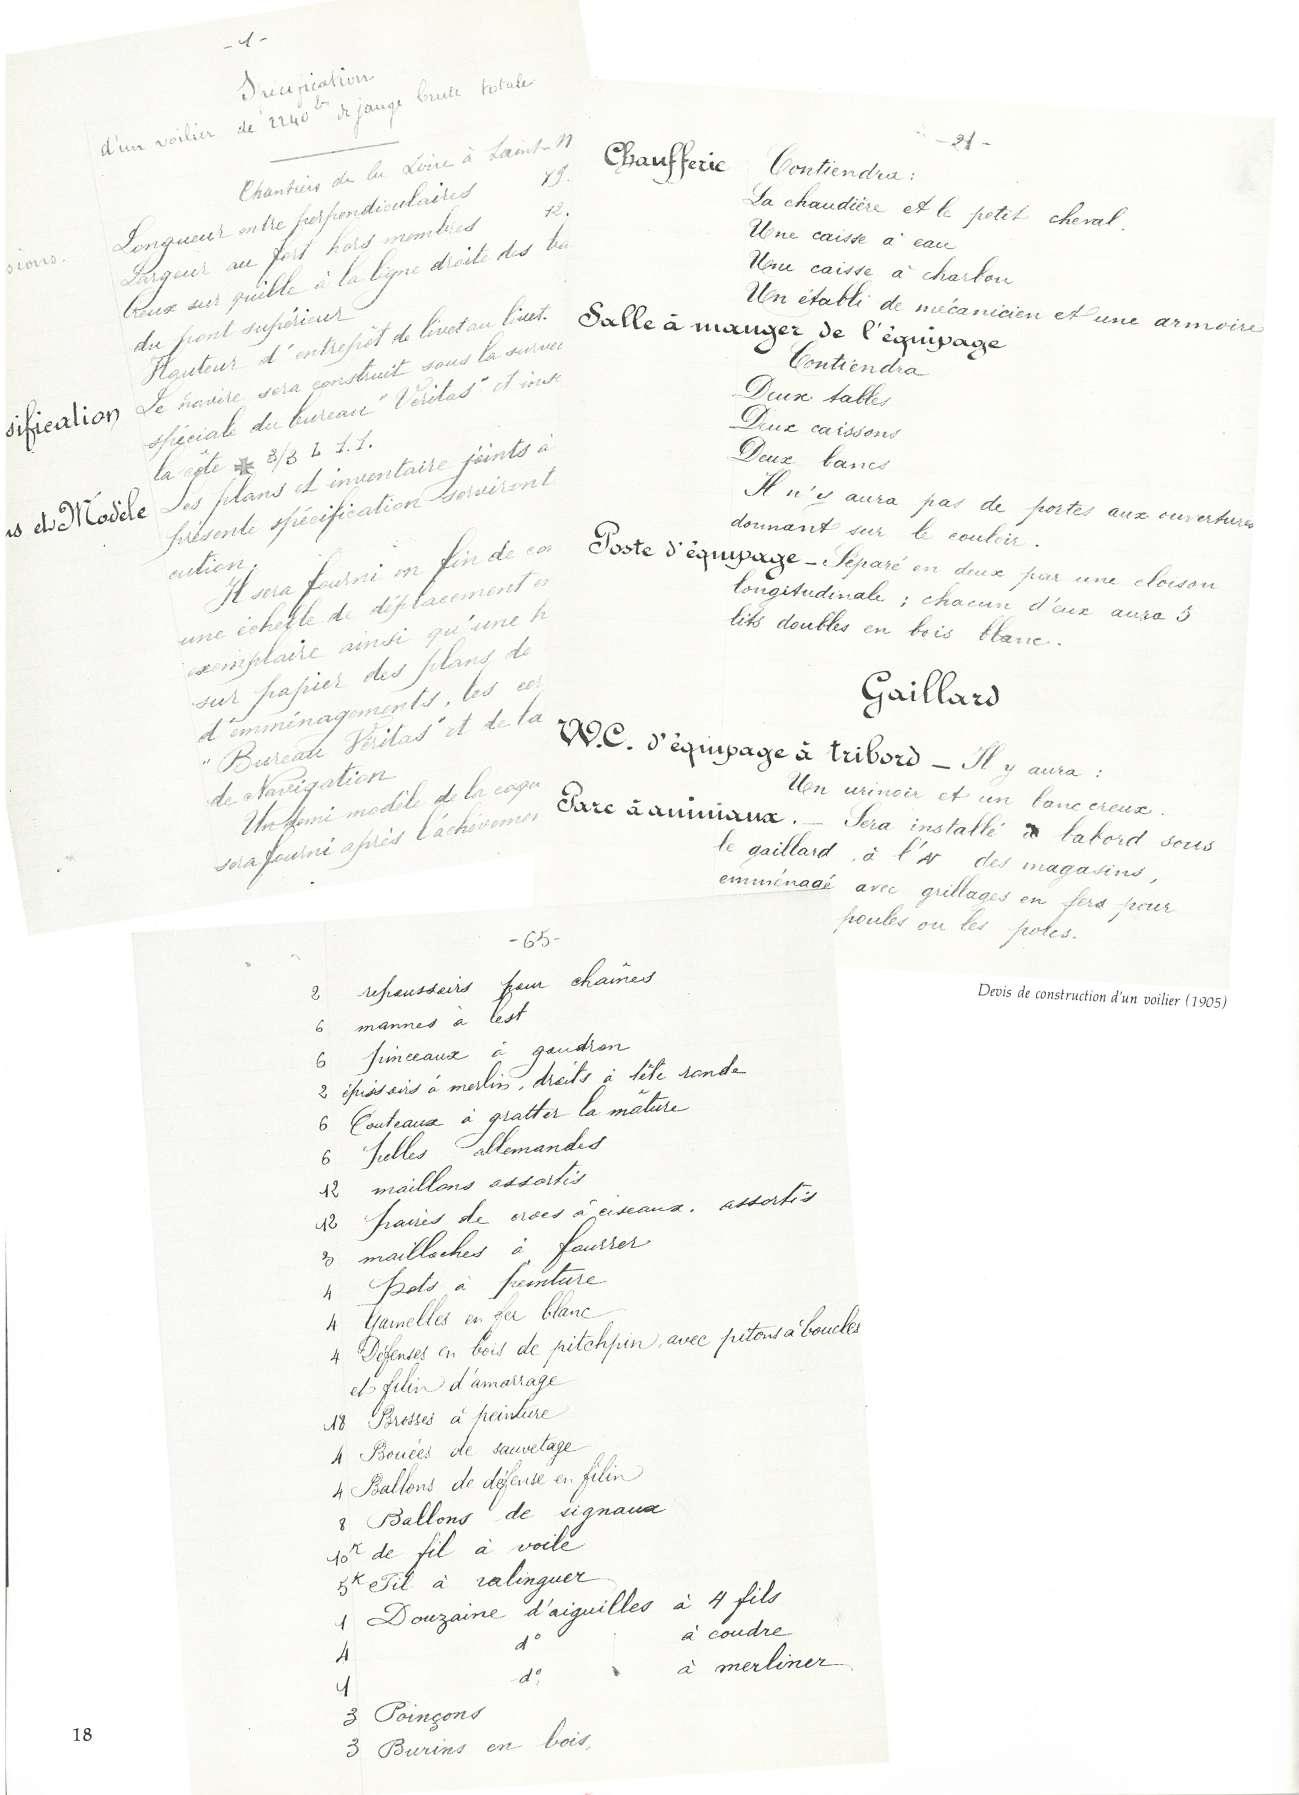 - 1 -
Spécification
d'un voilier de 2240 tx de jauge brute totale
Chantiers de la Loire à Saint-N
sions.
Longueur entre perpendiculaires 79.
Largeur au fort hors membres 12.
Creux sur quille à la ligne droite des ba
du pont supérieur
Hauteur d'entrepôt de livet au livet.
sification
Le navire sera construit sous la survei
spéciale du bureau "Veritas" et
la côte 3/3 L 1.1.
ns et Modèle
Les plans et inventaire joints à
présente spécification serviront
cution.
Il sera fourni en fin de con
une échelle de déplacement en
exemplaire ainsi qu'une
sur papier des plans de
d'emménagements, les
"Bureau Veritas" et de la
de Navigation
Un demi modèle de la coque
sera fourni après l'achèvemen
- 21 -
Chaufferie Contiendra :
La chaudière et le petit cheval.
Une caisse à eau
Une caisse à charbon
Un établi de mécanicien et une armoire
Salle à manger de l'équipage
Contiendra
Deux tables
Deux caissons
Deux bancs
Il n'y aura pas de portes aux ouvertures
donnant sur le couloir.
Poste d'équipage - Séparé en deux par une cloison
longitudinale ; chacun d'eux aura 5
lits doubles en bois blanc.
Gaillard
W.C. d'équipage à tribord - Il y aura :
Un urinoir et un banc creux.
Parc à animaux. - Sera installé à babord sous
le gaillard, à l'N des magasins,
emménagé avec grillages en fers pour
poules ou les porcs.
Devis de construction d'un voilier (1905)
- 65 -
2 repoussoirs pour chaînes
6 mannes à lest
6 pinceaux à goudron
2 épissoirs à merlin, droits à tête ronde
6 Couteaux à gratter la mâture
6 pelles allemandes
12 maillons assortis
12 paires de crocs à ciseaux. assortis
3 mailloches à fourrer
4 pots à peinture
4 Gamelles en fer blanc
4 Défenses en bois de pitchpin, avec pitons à boucles
et filin d'amarrage
18 Brosses à peinture
4 Bouées de sauvetage
4 Ballons de défense en filin
8 Ballons de signaux
10k de fil à voile
5k Fil à ralinguer
1 Douzaine d'aiguilles à 4 fils
4 d° à coudre
1 d° à merliner
3 Poinçons
3 Burins en bois.
18